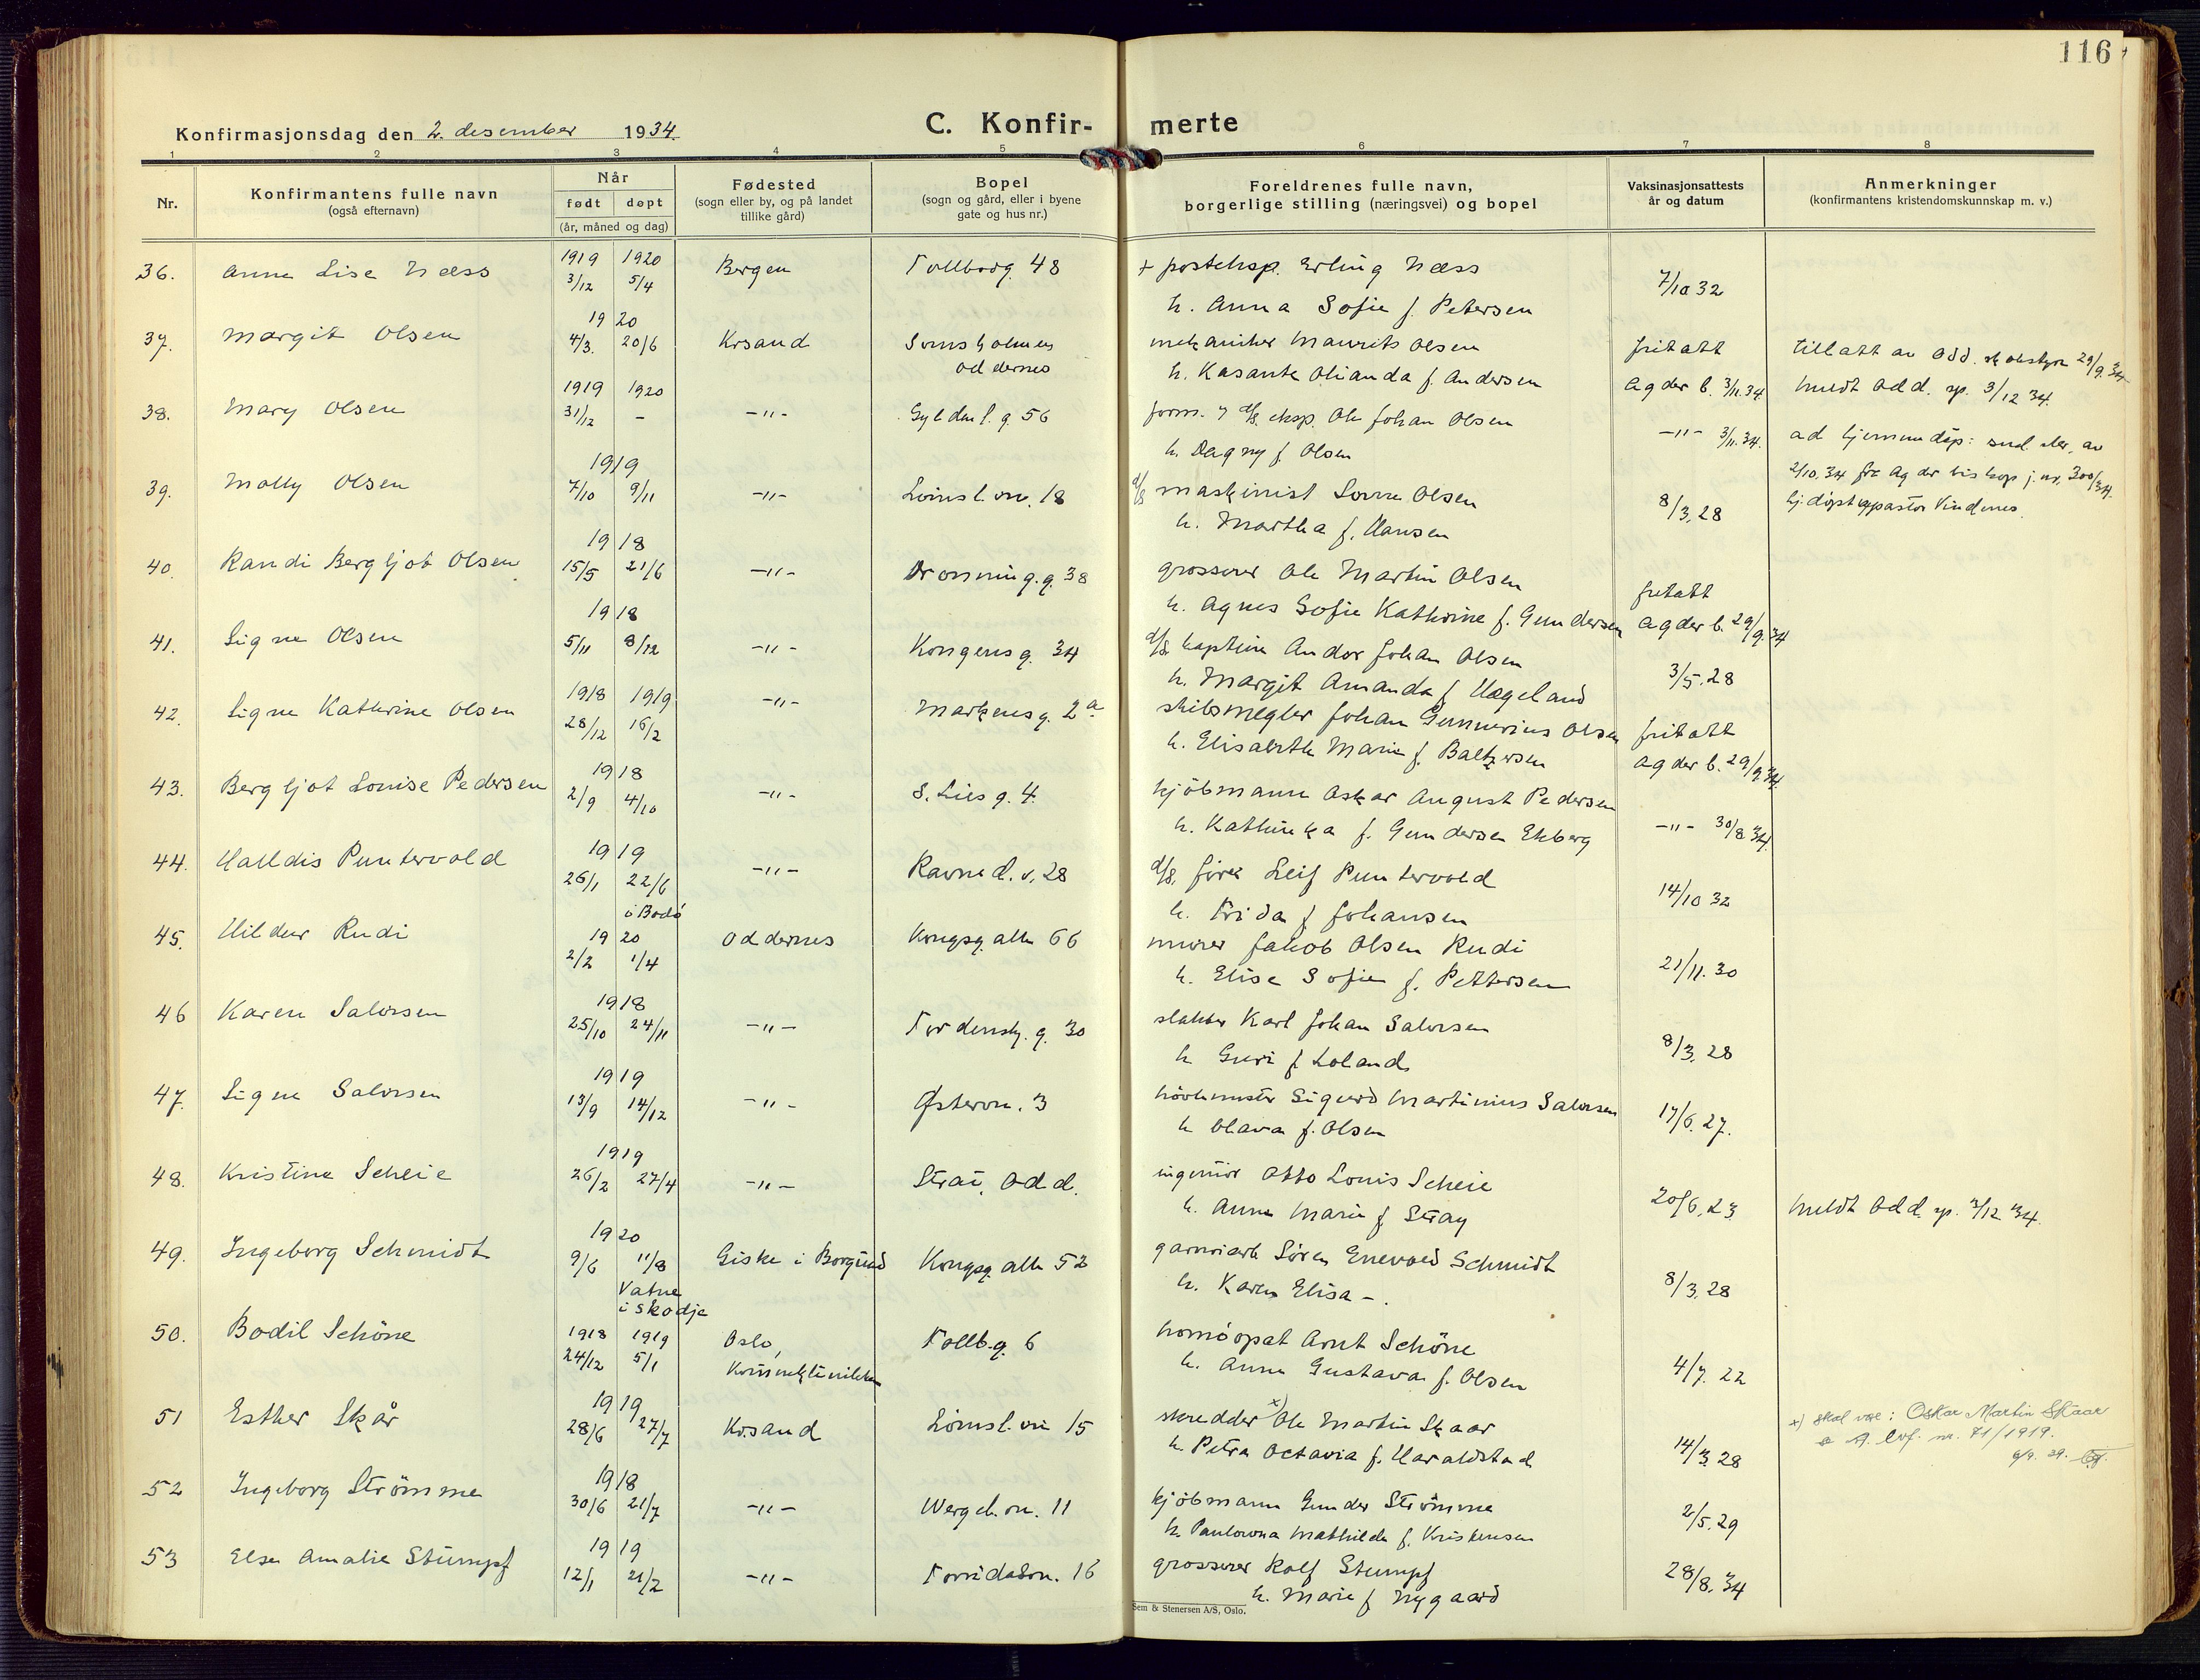 116
Konfirmasjonsdag den 2. desember 1934.
C. Konfir- merte
1 2 3 4 5 6 7 8
Nr.
Konfirmantens fulle navn
(også efternavn)
Når
født døpt
(år, måned og dag)
Fødested
(sogn eller by, og på landet
tillike gård)
Bopel
(sogn og gård, eller i byene
gate og hus nr.)
Foreldrenes fulle navn,
borgerlige stilling (næringsvei) og bopel
Vaksinasjonsattests
år og datum
Anmerkninger
(konfirmantens kristendomskunnskap m. v.)
36. Anna Lise Næss 1919 3/12 1920 5/4 Bergen Tollbodg. 48 + posteksp. Erling Næss
h. Anna Sofie f. Petersen 7/10 32
37. Margit Olsen 1920 4/3. 20/6 Krsand Oddernes mekaniker Maurits Olsen fritatt tillatt av Odd. skolestyre 29/9.34
h. Olianda f. Andersen Agder b. 3/11.34 meldt Odd. sp. 3/12 34.
38. Mary Olsen 1919 31/12 1920 - -"- Gyldenl. g. 56 form. d/s. eksp. Ole Johan Olsen
h. Dagny f. Olsen -"- 3/11.34. ad hjemmedåp: av
2/10.34 fra Agder biskop j. nr. 300/34.
39. Molly Olsen 1919 7/10 9/11 -"- 18 d/s maskinist Olsen
h. Martha f. Hansen 8/3.28 hj. døpt av pastor Vindenes.
40. Randi Bergljot Olsen 1918 15/5 21/6 -"- Dronning.g. 38 grosserer Ole Martin Olsen fritatt
h. Agnes Sofie Kathrine f. Gundersen Agder b. 29/9.34
41. Signe Olsen 1918 5/11 8/12 -"- Kongens g. 34 d/s. kaptein Andor Johan Olsen
h. Margit Amanda f. Hægeland 3/5.28
42. Signe Kathrine Olsen 1918 28/12 1919 16/2 -"- Markens g. 2a skibsmegler Johan Gunnerius Olsen fritatt
h. Elisabeth Marie f. Baltzersen Agder b. 29/9.34.
43. Bergljot Louise Pedersen 1918 2/9 4/10 -"- S. Lies g. 4. kjöbmann Oskar August Pedersen
h. Kathinka f. Gundersen Ekberg -"- 30/8 34.
44. Halldis Puntervold 1919 26/1 22/6 i Bodö -"- Ravned. v. 28 d/s. fører Leif Puntervold
h. Frida f Johansen 14/10 32
45. Hildur Rudi 1920 2/2 1/4 Oddernes Kongsg. alle 66 murer Jakob Olsen Rudi
h. Elise Sofie f. Pettersen 21/11.30
46 Karen Salvesen 1918 25/10 24/11 -"- Tordensk. g. 30 slakter Karl Johan Salvesen
h Guri f Loland 8/3.28
47. Signe Salvesen 1919 13/9 14/12 -"- Østervn. 3 Sigurd Martinius Salvesen
h Olava f. Olsen 17/6.27.
48. Kristine Scheie 1919 26/2 27/4 -"- Strai, Odd. ingeniör Otto Louis Scheie
h. Anna Marie f Stray 20/6.23 meldt Odd. sp. 3/12 34.
49. Ingeborg Schmidt 1920 9/6 11/8 Vatne i Skodje Giske i Borgund Kongsg. alle 52 Søren Enevold Schmidt
h. Karen Elisa -. 8/3.28
50. Bodil Schöne 1918 24/12 1919 5/1 Oslo, Tollb.g. 6 homöopat Arnt Schöne
h. Anna Gustava f. Olsen 4/7. 22
51 Esther Skår 1919 28/6 27/7 Krsand 15 skredder x) Ole Martin Skaar x) skal være: Oskar Martin Skaar
h. Petra Octavia f. Haraldstad 14/3 28 A. Lnf. nr. 71/1919.
52 Ingeborg Strömme 1918 30/6 21/7 -"- Wergel. vn. 11 kjöbmann Gunder Strömme
h. Paulowna Mathilde f. Kristensen 2/5.29
53 Else Amalie Stumpf 1919 12/1 21/2 -"- Torridalsvn. 16 grosserer Rolf Stumpf
h. Marie f Nygaard 28/8.34
Sem & Stenersen A/S, Oslo.